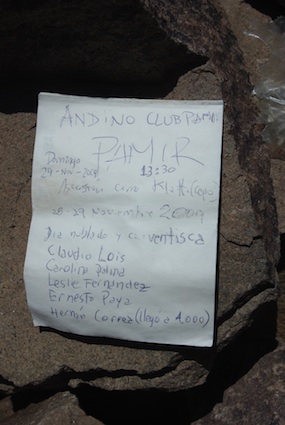 ANDINO CLUB PAMIR
PAMIR
Domingo 13:30
29-Nov-2009
Ascension Cerro
28-29 Noviembre 2009
Dia nublado y con ventisca
Claudio Lois
Carolina
Leslie Fernandez
Ernesto Paya
Hernan Correa (llegó a 4.000)